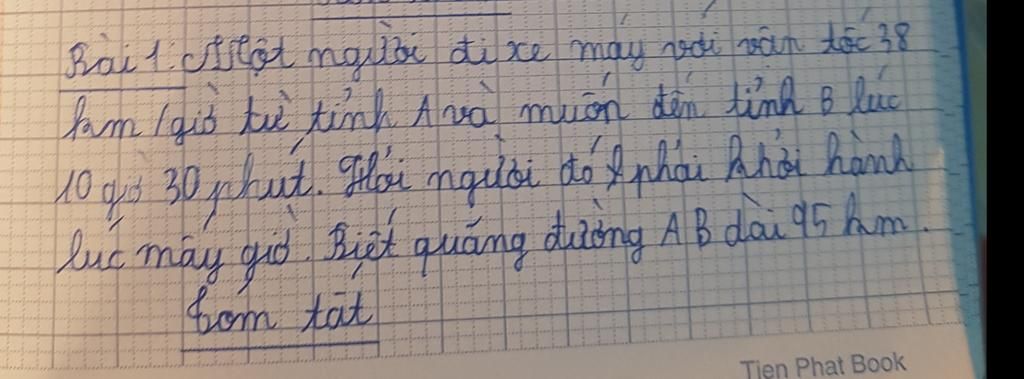 Bài 1: Một người đi xe máy với vận tốc 38
km/giờ từ tỉnh A và muốn đến tỉnh B lúc
10 giờ 30 phút. Hỏi người đó phải khởi hành
lúc mấy giờ. Biết quãng đường AB dài 95 km.
Tóm tắt
Tien Phat Book